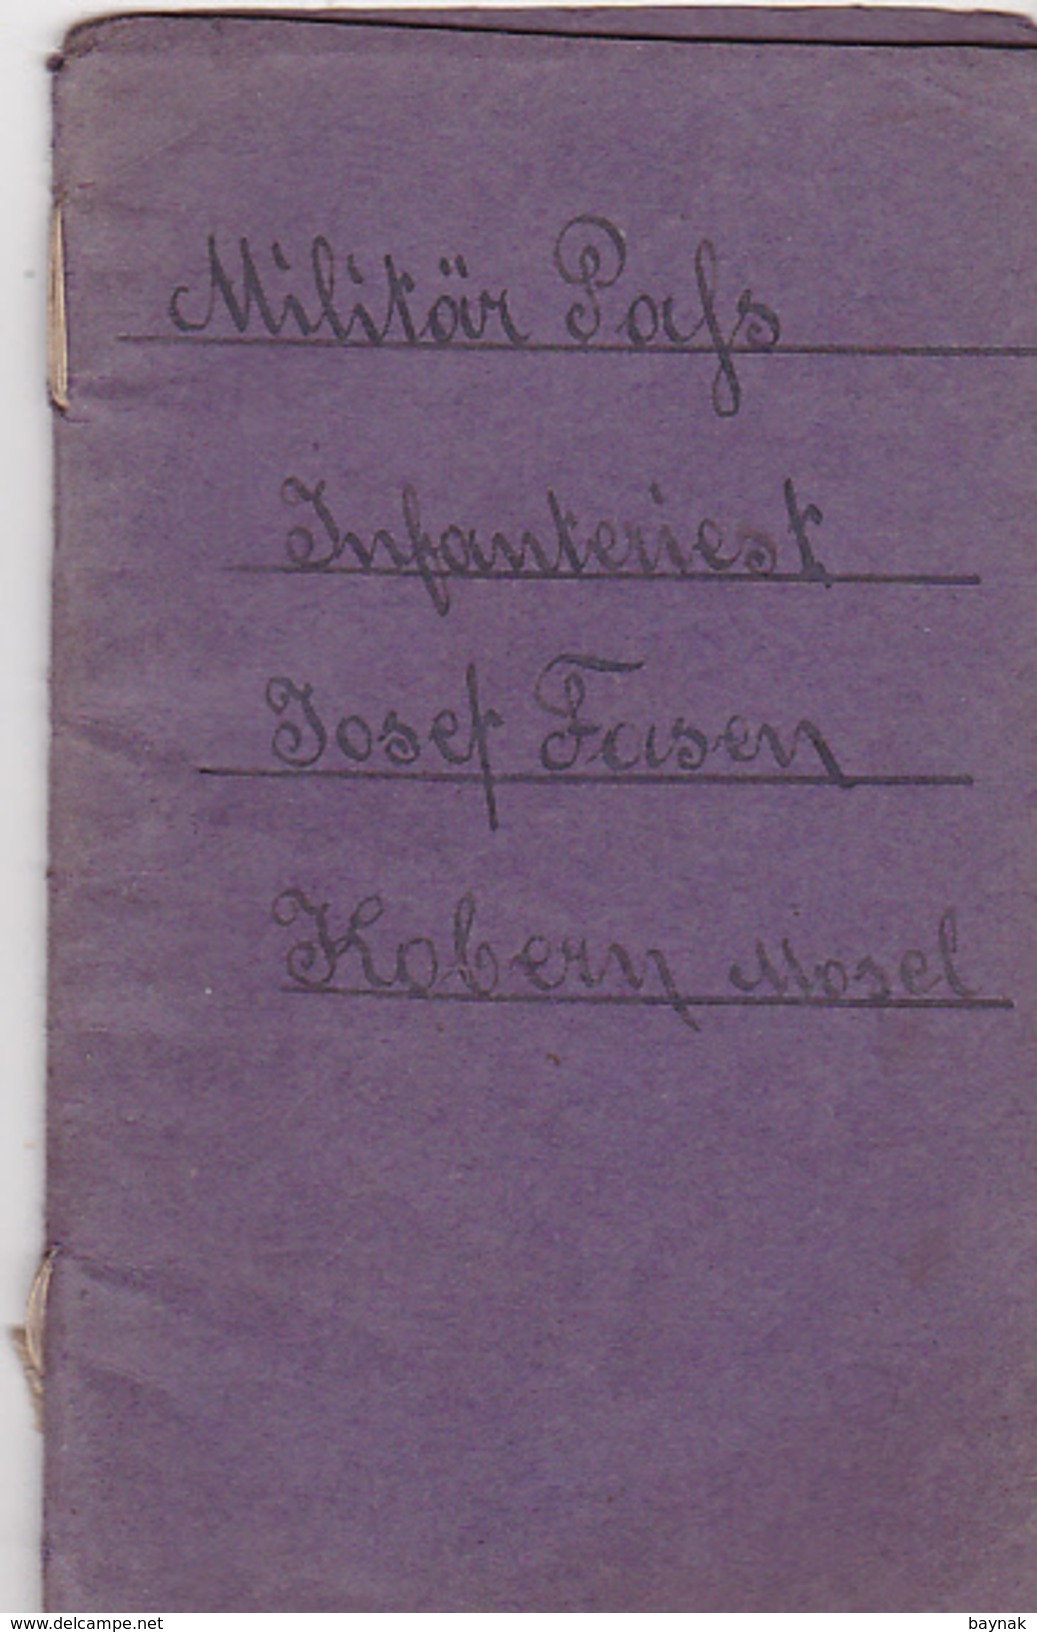 Militär Paſs
Infanteriest
Josef Fasen
Kobern Mosel
delcampe.net
baynak